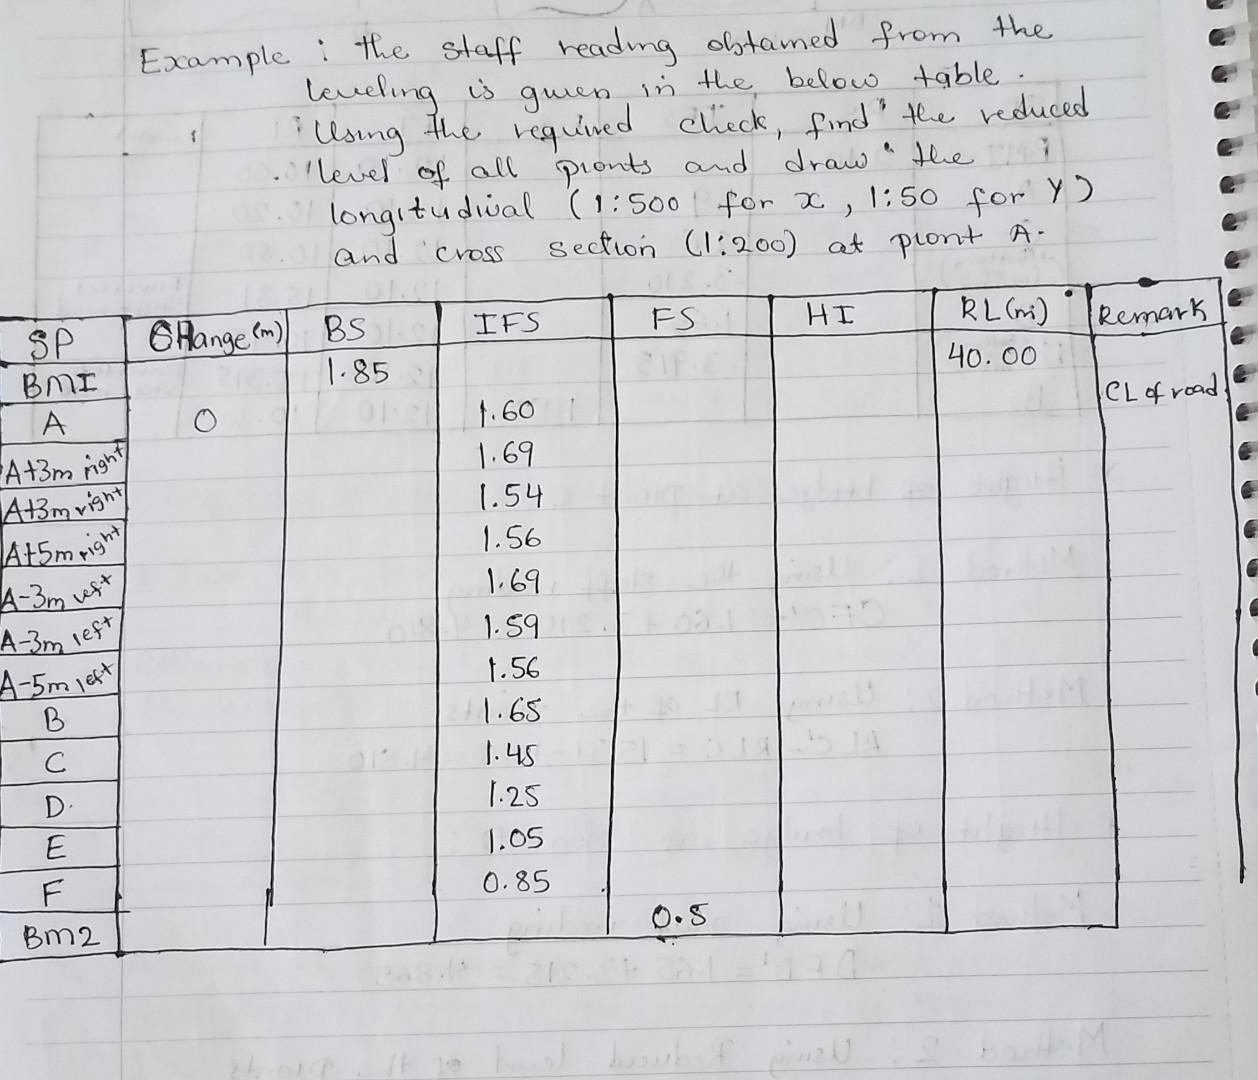 Example : the staff reading obtained from the
leveling is given in the below table.
Using the required check, find the reduced
level of all pionts and draw the
longitudinal (1:500 for x, 1:50 for Y)
and cross section (1:200) at piont A.
SP CHange(m) BS IFS FS HI RL(m) Remark
BM1 1.85 40.00
A 0 1.60 CL of road
A+3m right 1.69
A+3m right 1.54
A+5m right 1.56
A-3m left 1.69
A-3m left 1.59
A-5m left 1.56
B 1.65
C 1.45
D. 1.25
E 1.05
F 0.85
BM2 0.5